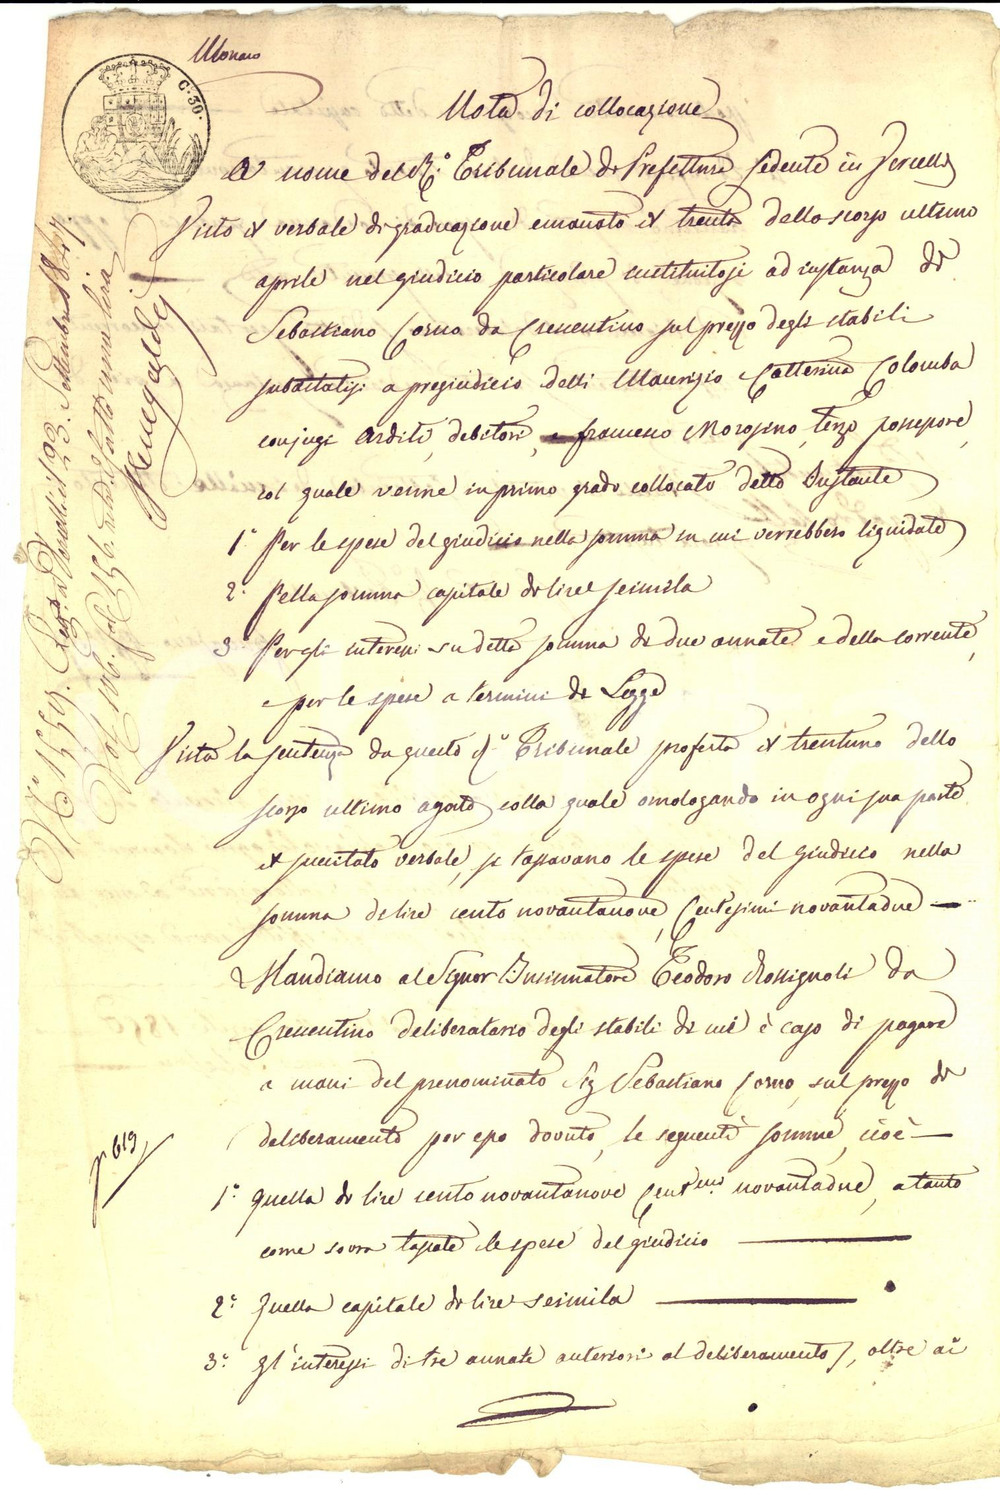 C. 30.
Nota di collocazione
A nome del R.° Tribunale di Prefettura sedente in Vercelli
Visto il verbale di graduazione emanato il trenta dello scorso ultimo
aprile nel giudicio particolare instituitosi ad instanza di
Sebastiano Corno da Crescentino sul prezzo degli stabili
subastatisi a pregiudicio delli Maurizio e Catterina Colomba
conjugi Arditi, debitori, e Francesco Morosino, terzo possessore,
col quale venne in primo grado collocato detto Instante
1.° Per le spese del giudicio nella somma in cui verrebbero liquidate
2.° Pella somma capitale di lire seimila
3.° Per gli interessi su detta somma di due annate e della corrente,
e per le spese a termini di Legge
Vista la sentenza da questo R.° Tribunale proferta il trentuno dello
scorso ultimo agosto colla quale omologando in ogni sua parte
il succitato verbale, si tassavano le spese del giudicio nella
somma di lire cento novantanove, Centesimi novantadue
Mandiamo al Signor Insinuatore Teodoro Rossignoli da
Crescentino deliberatario degli stabili di cui è caso di pagare
a mani del prenominato Sig Sebastiano Corno, sul prezzo di
deliberamento per esso dovuto, le seguenti somme, cioè
1.° Quella di lire cento novantanove Cent.mi novantadue, a tanto
come sovra tassate le spese del giudicio
2.° Quella capitale di lire seimila
3.° Gl'interessi di tre annate anteriori al deliberamento, oltre ai
N.° 1559. Reg.° a Vercelli il 23. Settembre 1847.
Vol. 106. fol. 156. una lira
619